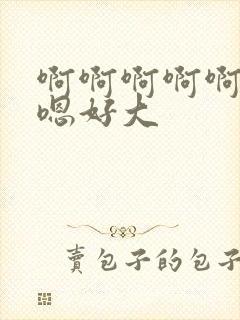 啊啊啊啊啊
嗯好大
賣包子的包子